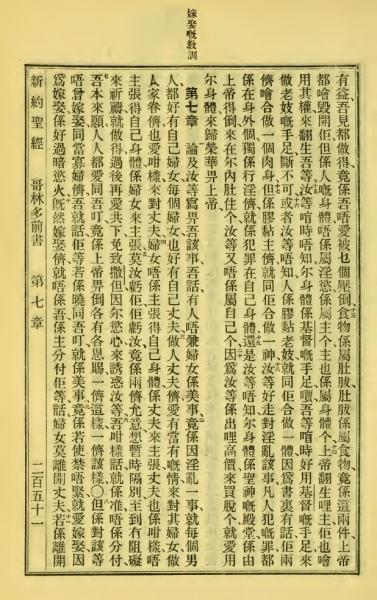 嫁娶嘅教訓
有益吾見都做得竟係吾唔愛被乜個壓倒食物係屬肚腹肚腹係屬食物竟係這兩件上帝
都噲毀開佢但係人嘅身體唔係屬淫慾係屬主个主也係屬身體个上帝翻生哩主佢也噲
用其權來翻生吾等汝等啃時唔知尔身體係基督嘅手足嗄吾等啃時好用基督嘅手足來
做老妓嘅手足斷不可或者汝等唔知人係膠黏老妓就同佢合做一體因爲書裏有話佢兩
儕噲合做一個肉身但係膠黏主儕就同佢合做一神汝等好走對淫亂該事凡人犯嘅罪都
係在身外個獨係行淫儕就係犯罪在自己身體還是汝等唔知尔身體係聖神嘅殿堂係由
上帝得倒來在尔內肚住个汝等又唔係屬自己个因爲汝等係出哩高價來買脫个就愛用
尔身體來歸榮華畀上帝
第七章 論及汝等寫畀吾該事吾話有人唔兼婦女係美事竟係因淫亂一事就每個男
人都好有自己婦女每個婦女也好有自己丈夫做人丈夫儕愛有當有嘅情來對其婦女做
人家眷儕也愛咁樣來對丈夫婦女唔係主張得自己身體係丈夫來主張丈夫也係咁樣唔
主張得自己身體係婦女來主張莫汝虧佢佢虧汝竟係兩儕允意想暫時隔別至到有阻礙
來祈禱就做得過後再愛共下免致撒但因尔慾心來誘惑汝等吾咁樣話就係准唔係分付
吾本來願人人都愛同吾叮竟係上帝畀倒各有各恩賜一儕這樣一儕該樣〇但係對該等
唔曾嫁娶同當寡婦儕吾就話佢等若係曉同吾叮就係美事竟係若使禁唔緊就愛嫁娶因
爲嫁娶係好過暗慾火既然嫁娶儕就唔係吾係主分付佢等話婦女莫離開丈夫若係離開
新約聖經 哥林多前書 第七章 二百五十一